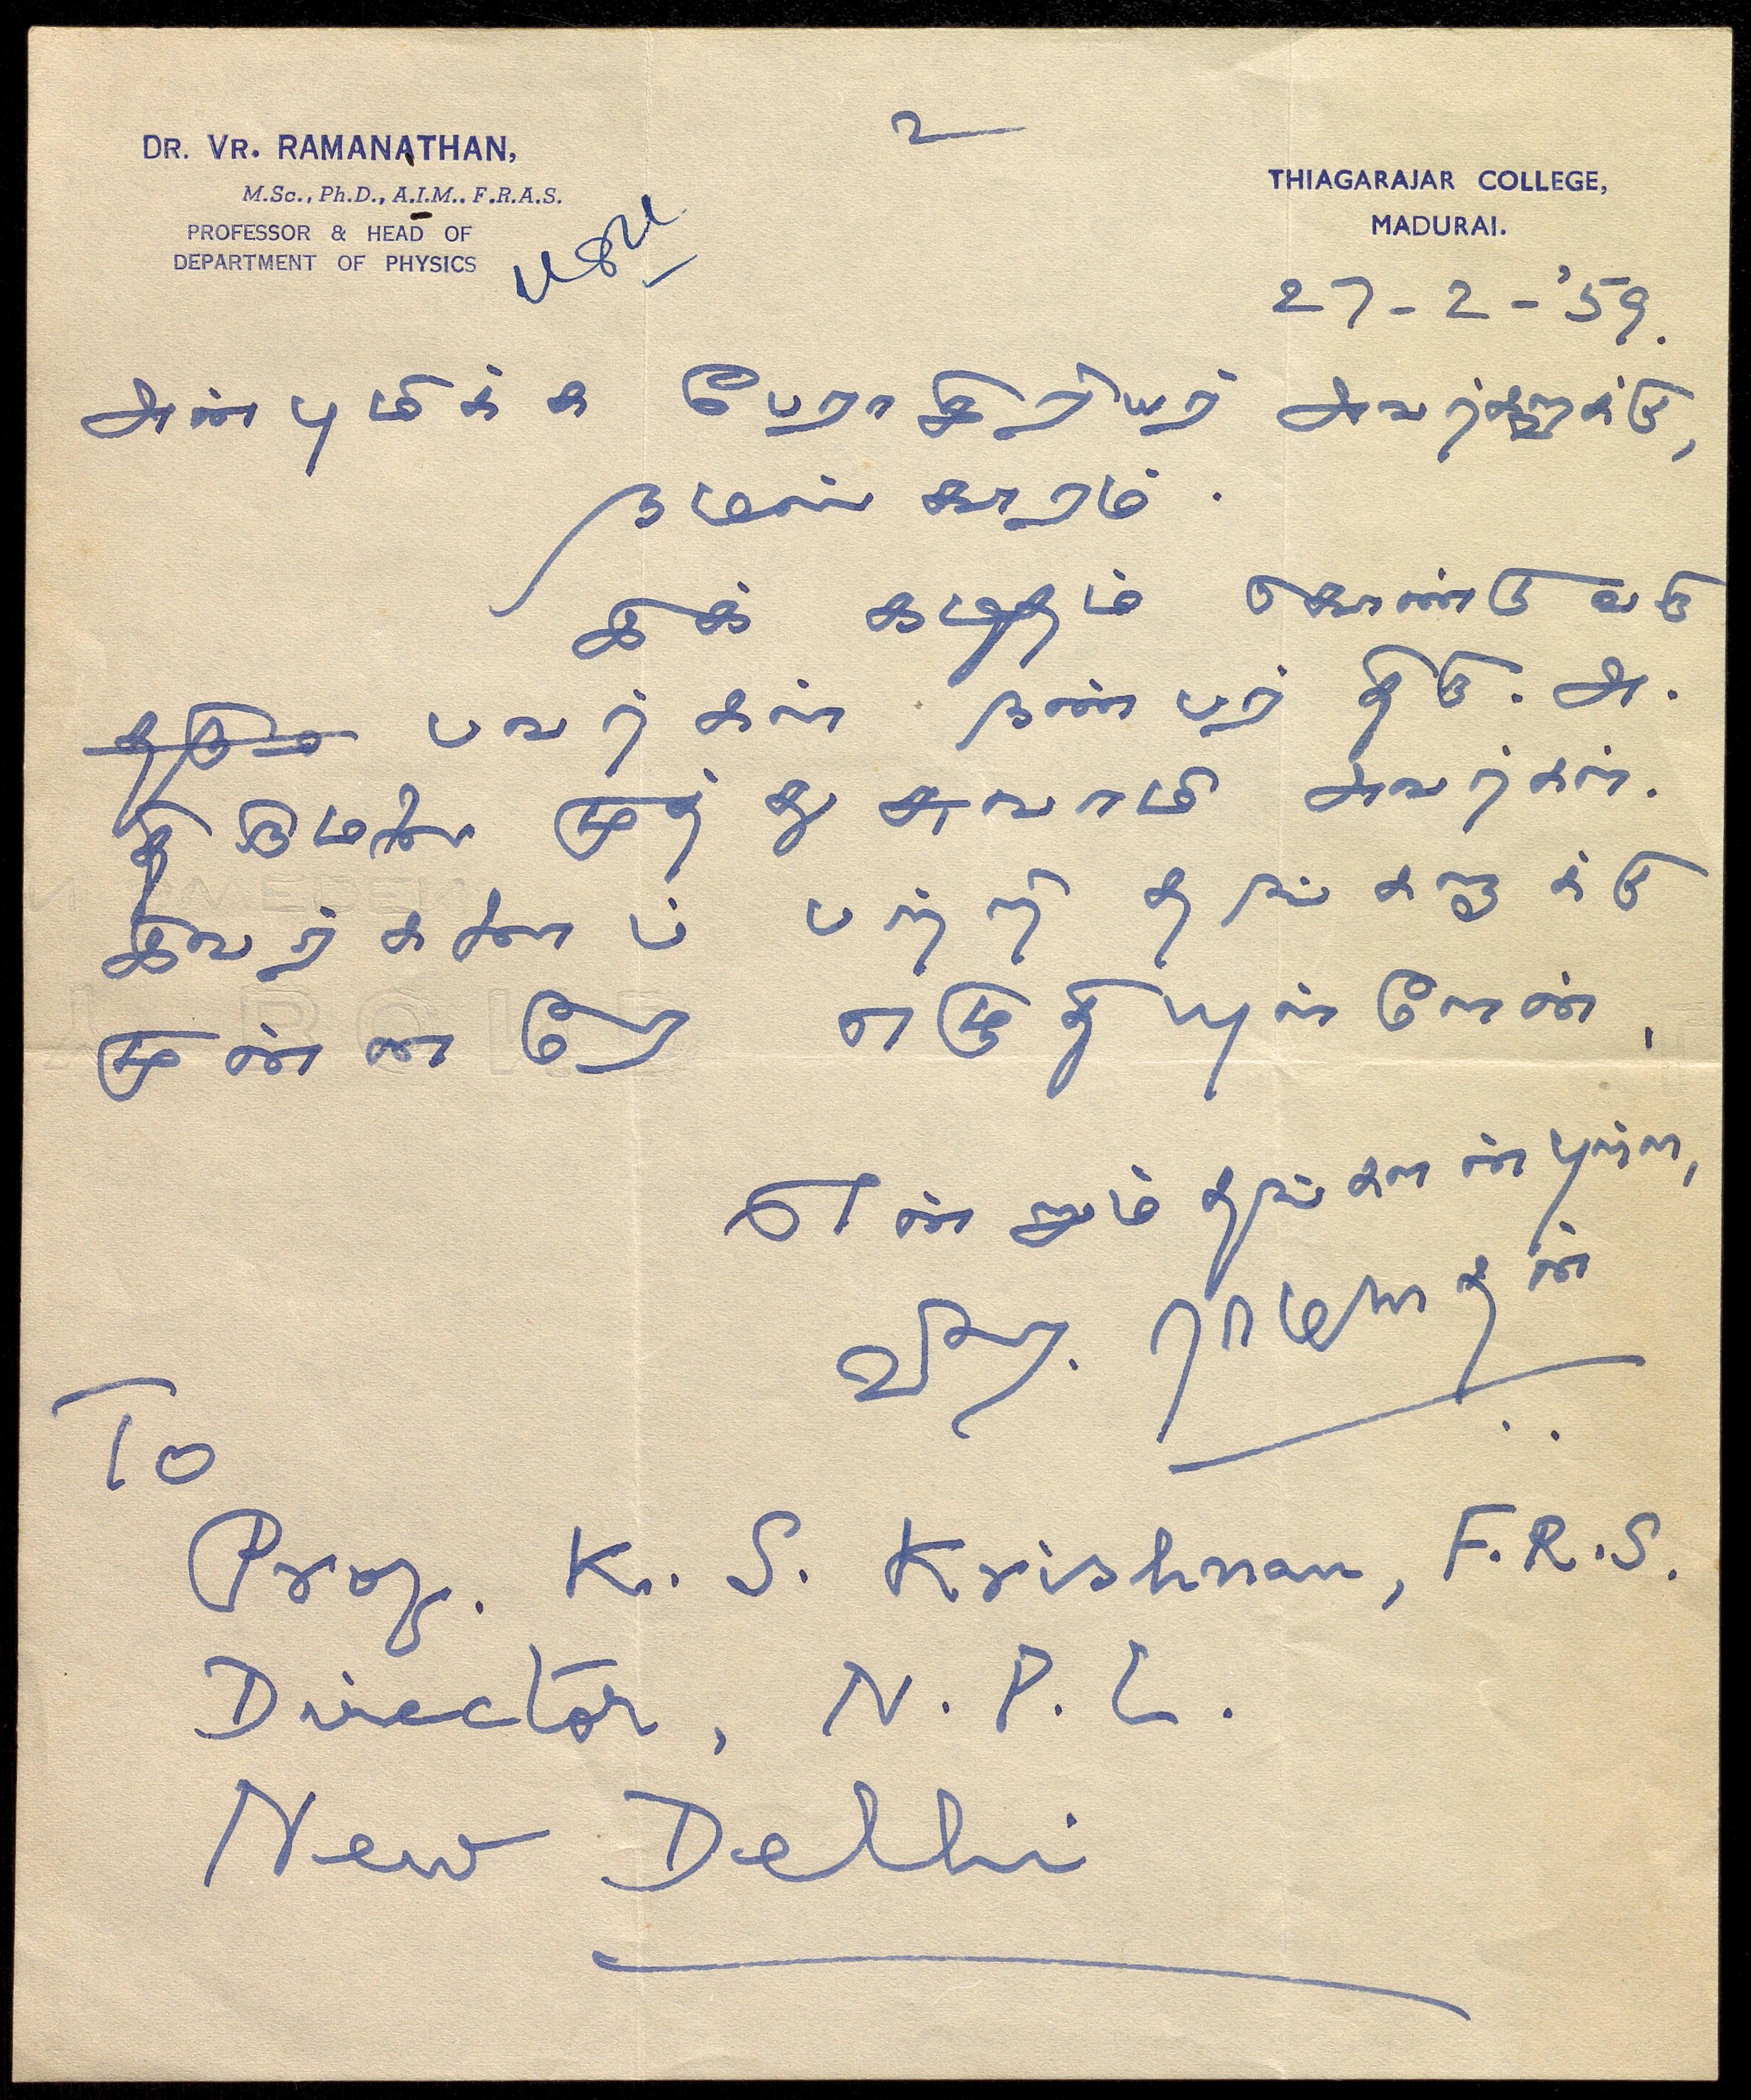 உ
DR. VR. RAMANATHAN,
M.Sc., Ph.D., A.I.M., F.R.A.S.
PROFESSOR & HEAD OF
DEPARTMENT OF PHYSICS
THIAGARAJAR COLLEGE,
MADURAI.
27-2-'59.
அன்புமிக்க பேராசிரியர் அவர்களுக்கு,
நமஸ்காரம்.
இக் கடிதம் கொண்டு வரு
பவர்கள் நண்பர் திரு. அ.
திருமலை முத்து சுவாமி அவர்கள்.
இவர்களைப் பற்றி தங்களுக்கு
முன்னரே எழுதியுள்ளேன்.
என்றும் தங்களன்புள்ள,
வீர. ராமனாதன்
To
Prof. K. S. Krishnan, F.R.S.
Director, N. P. L.
New Delhi